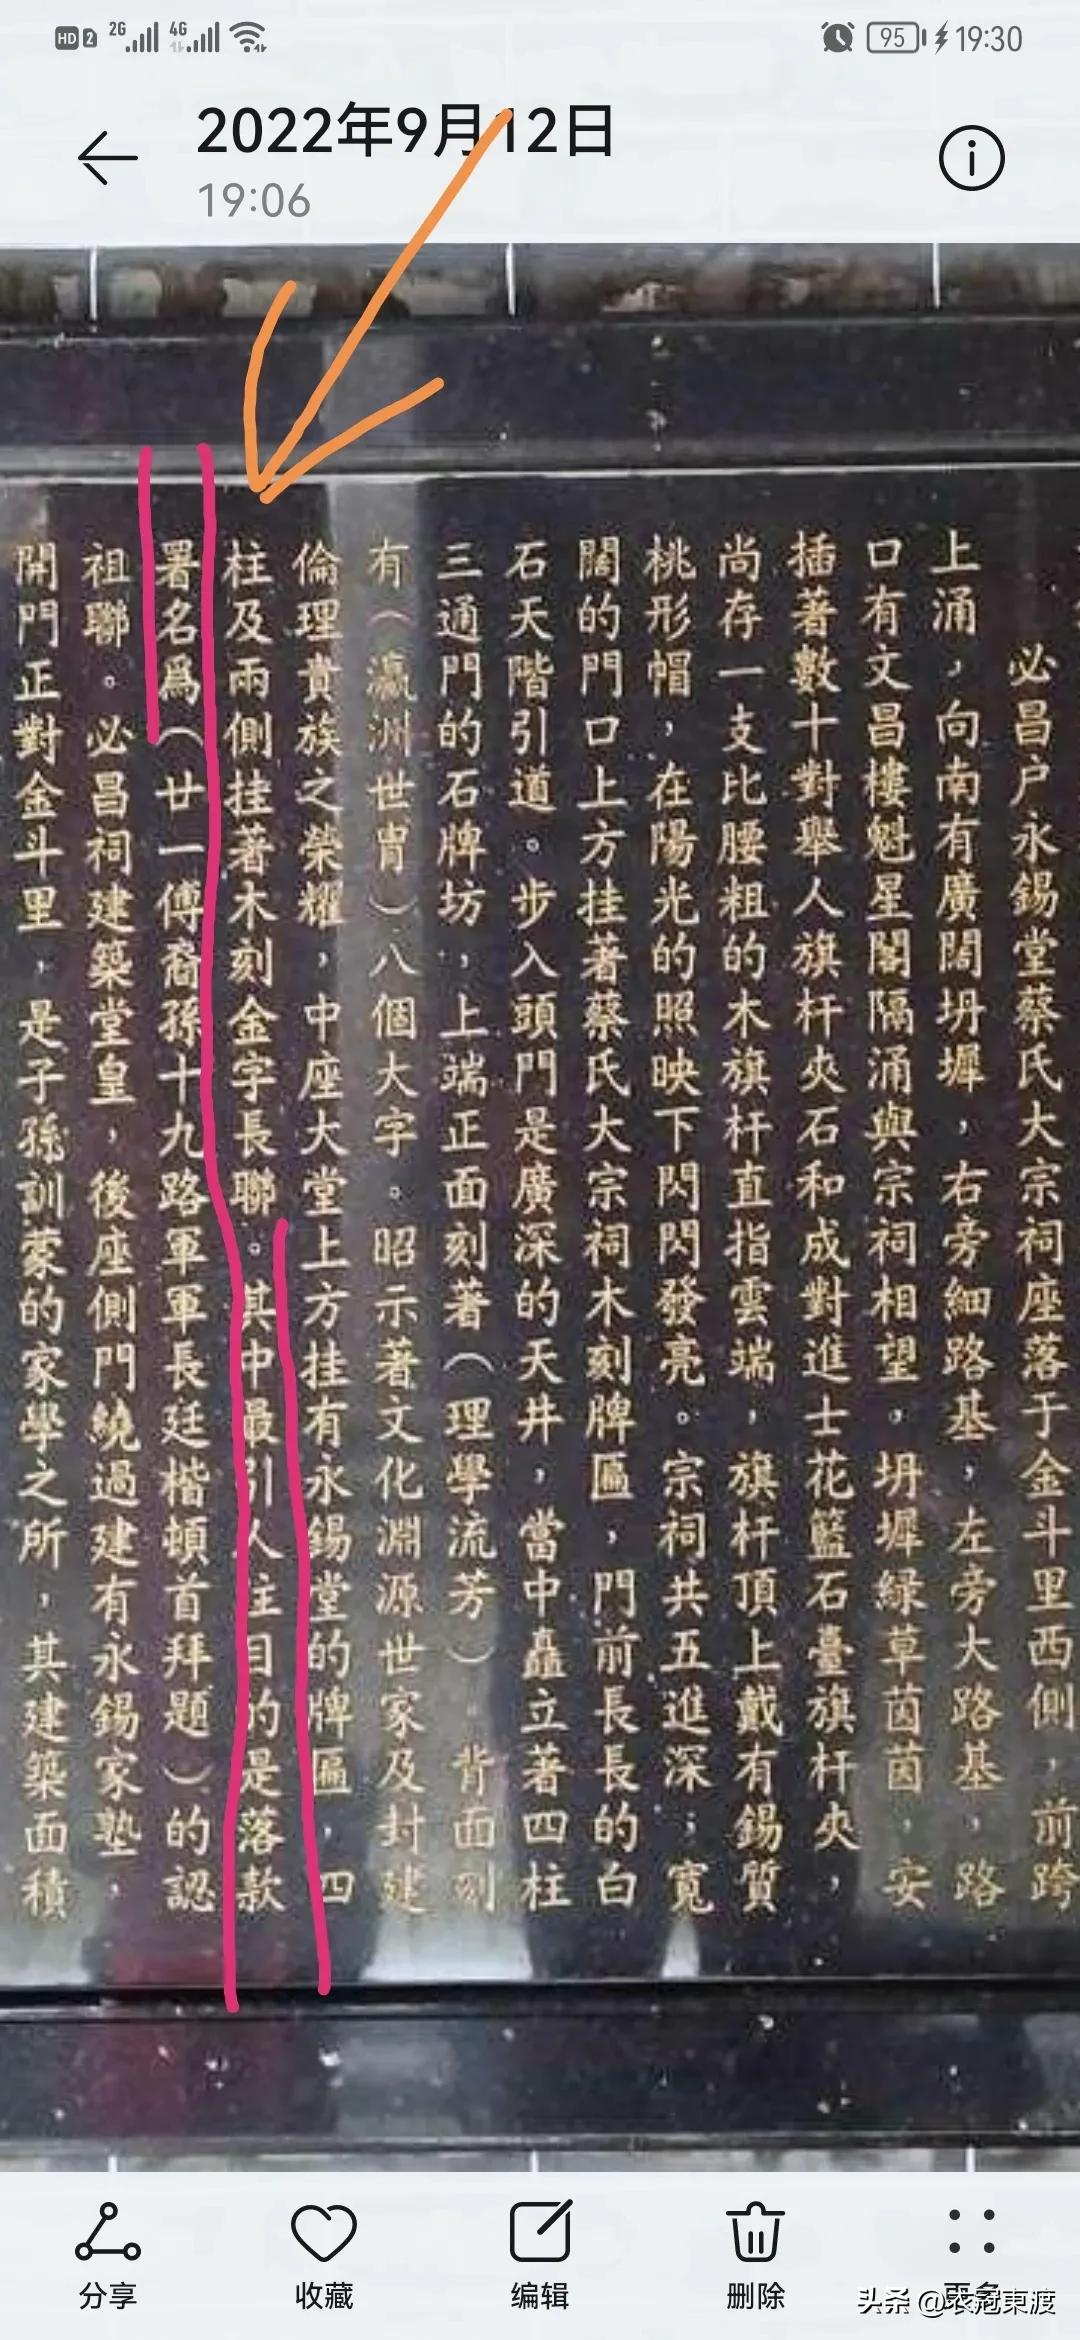 HD 2 2G 4G 95 19:30
2022年9月12日
19:06
必昌户永錫堂蔡氏大宗祠座落于金斗里西側，前跨
上涌，向南有廣闊坍墀，右旁細路基，左旁大路基，路
口有文昌樓魁星閣隔涌與宗祠相望，坍墀緑草茵茵，安
插著數十對舉人旗杆夾石和成對進士花籃石臺旗杆夾，
尚存一支比腰粗的木旗杆直指雲端，旗杆頂上戴有錫質
桃形帽，在陽光的照映下閃閃發亮。宗祠共五進深；寬
闊的門口上方挂著蔡氏大宗祠木刻牌匾，門前長長的白
石天階引道。步入頭門是廣深的天井，當中矗立著四柱
三通門的石牌坊，上端正面刻著（理學流芳）。背面刻
有（瀛洲世胄）八個大字。昭示著文化淵源世家及封建
倫理貴族之榮耀，中座大堂上方挂有永錫堂的牌匾，四
柱及兩側挂著木刻金字長聯。其中最引人注目的是落款
署名爲（廿一傅裔孫十九路軍軍長廷楷頓首拜題）的認
祖聯。必昌祠建築堂皇，後座側門繞過建有永錫家塾，
開門正對金斗里，是子孫訓蒙的家學之所，其建築面積
分享 收藏 编辑 删除 更多
头条 @衣冠東渡